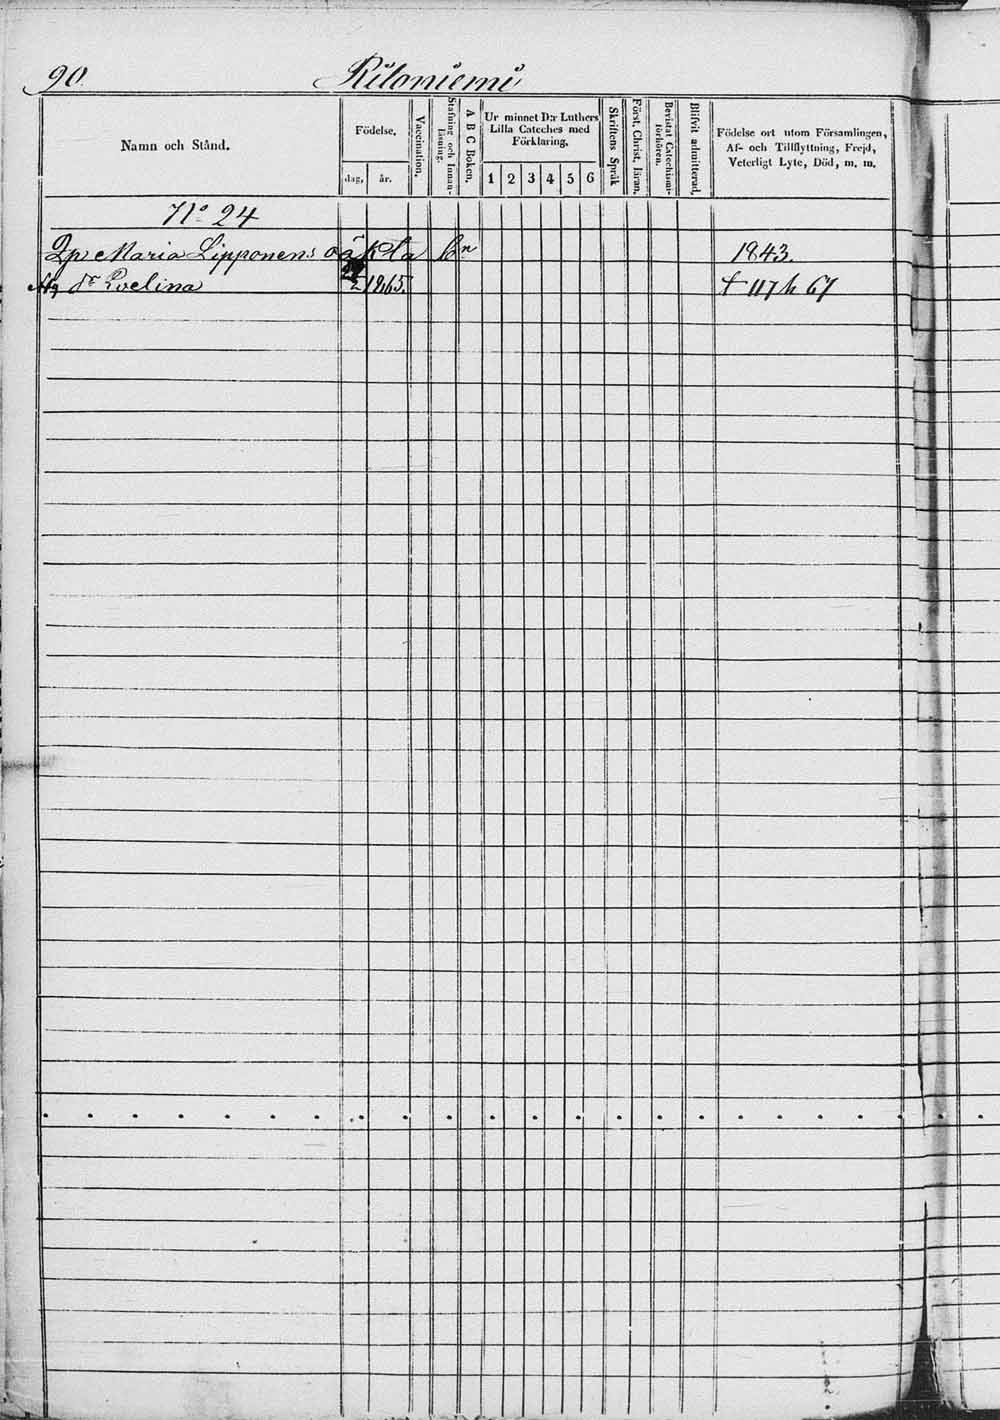 90. Riloniemi
Namn och Stånd.
Födelse.
dag. år.
Vaccination.
Stafning och Innan-läsning.
A B C Boken.
Ur minnet D:r Luthers
Lilla Cateches med
Förklaring.
1 2 3 4 5 6
Skriftens Språk
Först. Christ. läran.
Bevistat Catechismi-förhören.
Blifvit admitterad.
Födelse ort utom Församlingen,
Af- och Tillflyttning, Frejd,
Veterligt Lyte, Död, m. m.
No 24
Qp Maria Lipponens oäkta bn 1843.
dr Evelina 1865. † 11 7/4 67